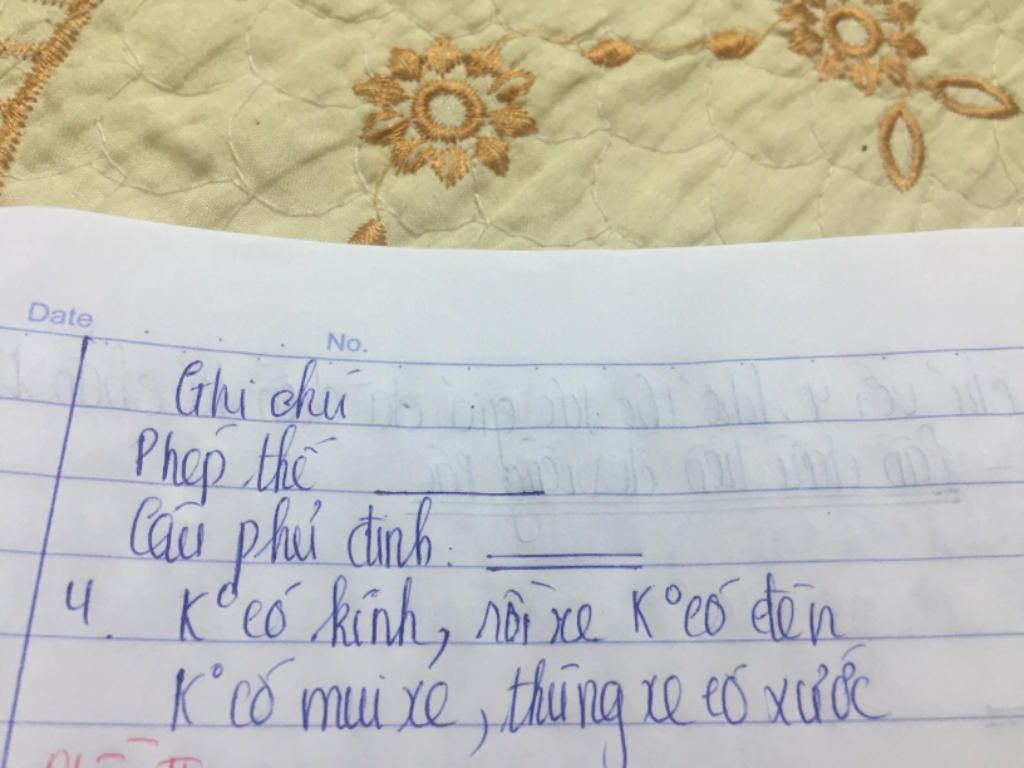 Date
No.
Ghi chú
Phép thế
Câu phủ định:
4. K° có kính, rồi xe K° có đèn
K° có mui xe, thùng xe có xước